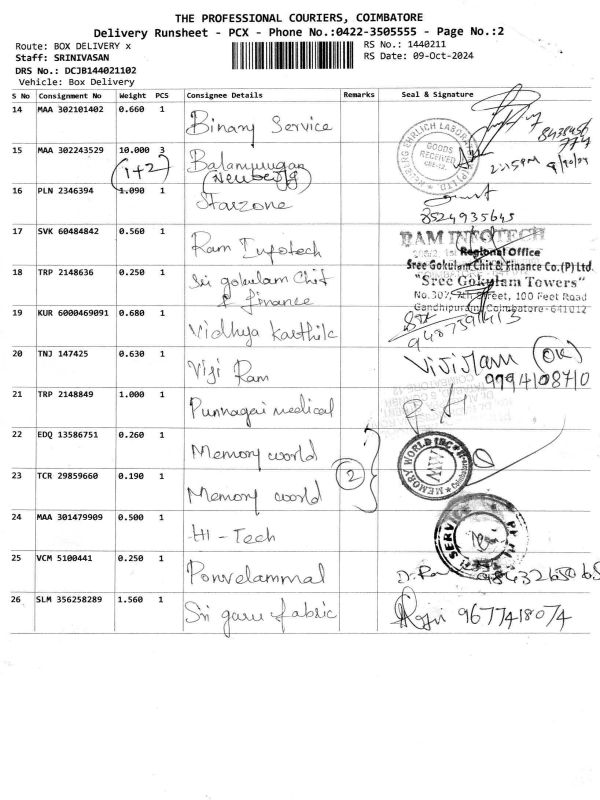 THE PROFESSIONAL COURIERS, COIMBATORE
Delivery Runsheet - PCX - Phone No.:0422-3505555 - Page No.:2
Route: BOX DELIVERY x
RS No.: 1440211
Staff: SRINIVASAN
RS Date: 09-Oct-2024
DRS No.: DCJB144021102
Vehicle: Box Delivery
S No Consignment No Weight PCS Consignee Details Remarks Seal & Signature
14 MAA 302101402 0.660 1 Binary Service
15 MAA 302243529 10.000 3 Balamurugan
EHRLICH LABORA
GOODS RECEIVED
(1+2) (Neuberg)
16 PLN 2346394 1.090 1 Starzone
8524935645
17 SVK 60484842 0.560 1 Ram Infotech
RAM INFOTECH
Regional Office
18 TRP 2148636 0.250 1 Sri gokulam Chit
& finance
Sree Gokulam Chit & Finance Co.(P) Ltd.
"Sree Gokulam Towers"
Street, 100 Feet Road
Gandhipuram, Coimbatore-641012
19 KUR 6000469091 0.680 1 Vidhya Karthik
20 TNJ 147425 0.630 1 Viji Ram
OK
9794108710
21 TRP 2148849 1.000 1 Punnagai medical
22 EDQ 13586751 0.260 1 Memory world
MEMORY WORLD
MW
(2)
23 TCR 29859660 0.190 1 Memory world
24 MAA 301479909 0.500 1 HI-Tech
SERVICE
25 VCM 5100441 0.250 1 Ponvelammal
26 SLM 356258289 1.560 1 Sri guru fabric
9677418074